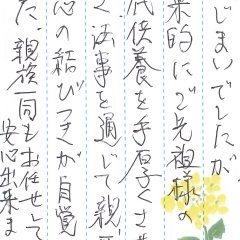 じまいでしたが
来的にご先祖様の
代供養を手厚くさせ
く、法事を通じて親
心の結びつきが自覚
た、親族一同もお任せして
安心出来ま